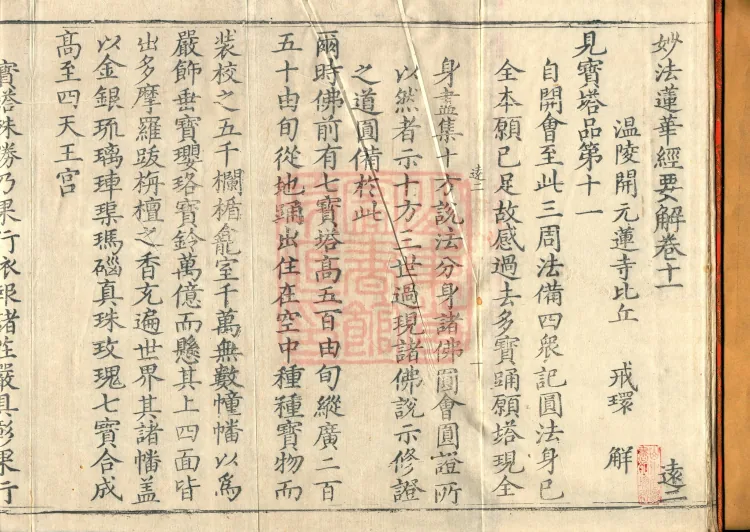 妙法蓮華經要解卷十一
遠二
温陵開元蓮寺比丘 戒環 解
見寶塔品第十一
自開會至此三周法備四衆記圓法身已
全本願已足故感過去多寶踊願塔現全
遠二
一
身盡集十方說法分身諸佛圓會圓證所
以然者示十方三世過現諸佛說示修證
之道圓備於此
爾時佛前有七寶塔高五百由旬縱廣二百
五十由旬從地踊出住在空中種種寶物而
裝校之五千欄楯龕室千萬無數幢幡以爲
嚴飾垂寶瓔珞寶鈴萬億而懸其上四面皆
出多摩羅跋栴檀之香充遍世界其諸幡蓋
以金銀琉璃硨磲瑪碯真珠玫瑰七寶合成
高至四天王宮
寶塔殊勝乃果行衣報諸莊嚴具彰果行